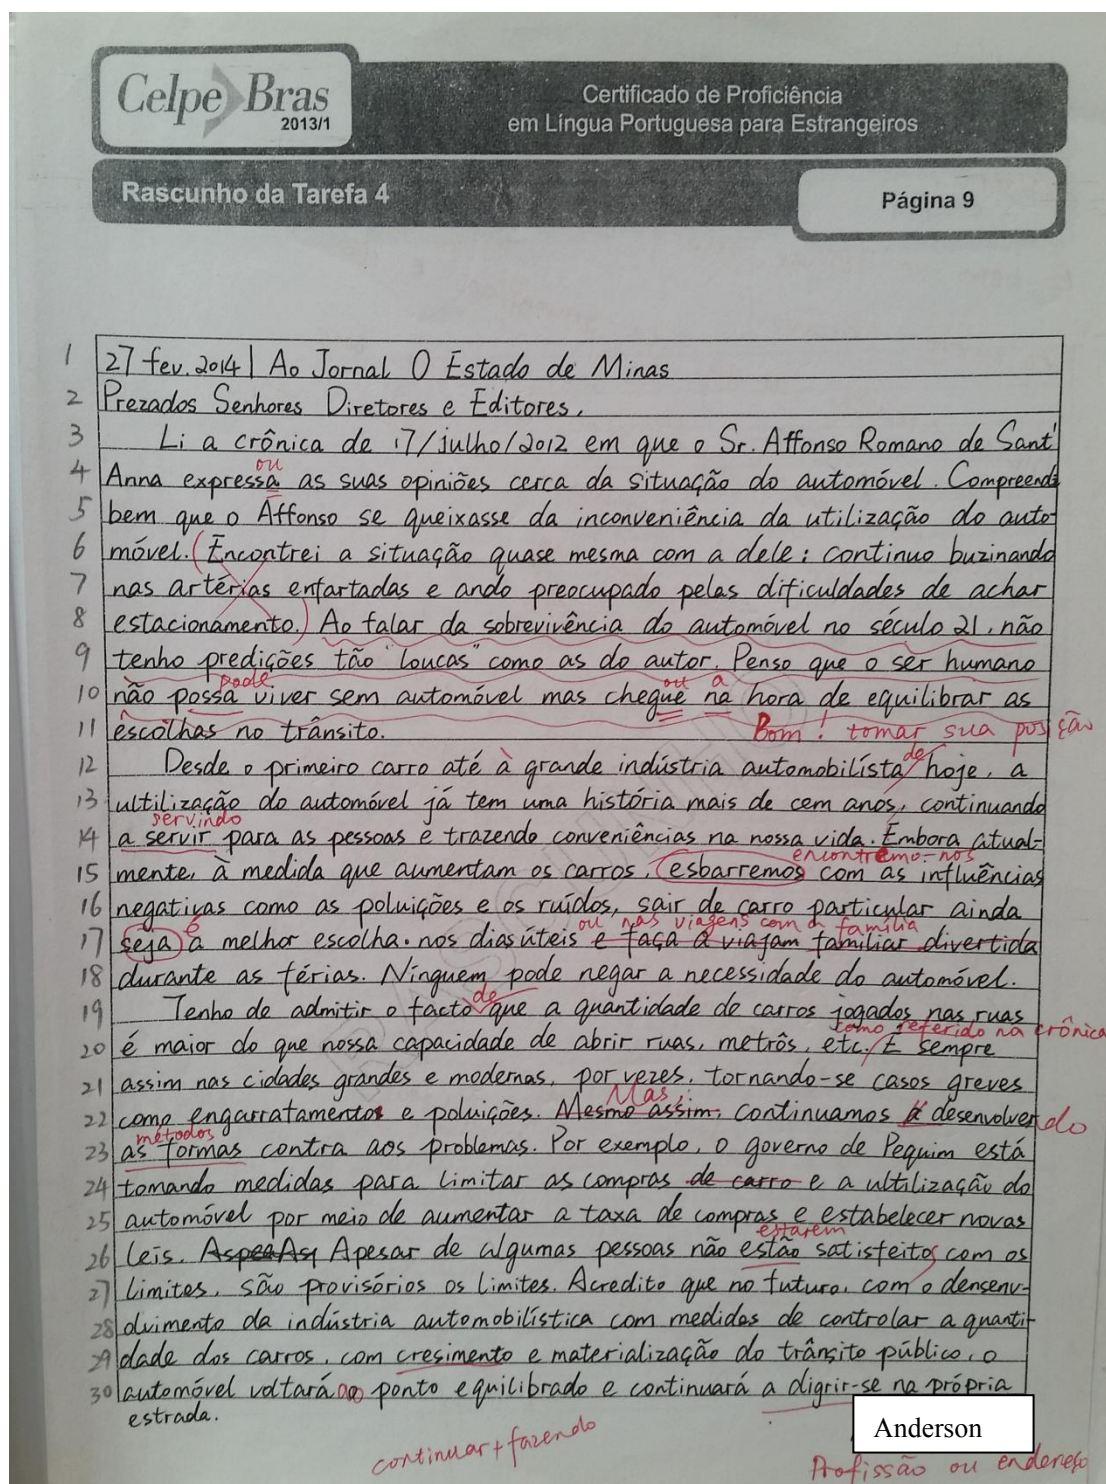 Celpe Bras
2013/1
Certificado de Proficiência
em Língua Portuguesa para Estrangeiros
Rascunho da Tarefa 4
Página 9
1 27 fev. 2014 | Ao Jornal O Estado de Minas
2 Prezados Senhores Diretores e Editores,
3 Li a crônica de 17/julho/2012 em que o Sr. Affonso Romano de Sant'
ou
4 Anna expressa as suas opiniões cerca da situação do automóvel. Compreendi
5 bem que o Affonso se queixasse da inconveniência da utilização do auto-
6 móvel. (Encontrei a situação quase mesma com a dele: continuo buzinando
7 nas artérias enfartadas e ando preocupado pelas dificuldades de achar
8 estacionamento.) Ao falar da sobrevivência do automóvel no século 21, não
9 tenho predições tão "loucas" como as do autor. Penso que o ser humano
pode ou a
10 não possa viver sem automóvel mas chegue na hora de equilibrar as
11 escolhas no trânsito. Bom! tomar sua posição
de
12 Desde o primeiro carro até à grande indústria automobilísta hoje, a
13 ultilização do automóvel já tem uma história mais de cem anos, continuando
servindo
14 a servir para as pessoas e trazendo conveniências na nossa vida. Embora atual-
encontremo-nos
15 mente, à medida que aumentam os carros, esbarremos com as influências
16 negativas como as poluições e os ruídos, sair de carro particular ainda
é ou nas viagens com a família
17 seja a melhor escolha nos dias úteis e faça a viajam familiar divertida
18 durante as férias. Ninguem pode negar a necessidade do automóvel.
de
19 Tenho de admitir o facto que a quantidade de carros jogados nas ruas
como referido na crônica
20 é maior do que nossa capacidade de abrir ruas, metrôs, etc. É sempre
21 assim nas cidades grandes e modernas, por vezes, tornando-se casos greves
Mas,
22 como engarratamentos e poluições. Mesmo assim, continuamos a desenvolvendo
métodos
23 as formas contra aos problemas. Por exemplo, o governo de Pequim está
24 tomando medidas para limitar as compras de carro e a ultilização do
25 automóvel por meio de aumentar a taxa de compras e estabelecer novas
estarem
26 leis. Apesar de algumas pessoas não estão satisfeitos com os
27 limites, são provisórios os limites. Acredito que no futuro, com o densenv-
28 olvimento da indústria automobilística com medidas de controlar a quanti-
29 dade dos carros, com cresimento e materialização do trânsito público, o
30 automóvel voltará ao ponto equilibrado e continuará a digrir-se na própria
estrada.
Anderson
continuar + fazendo
Profissão ou endereço
RASCUNHO